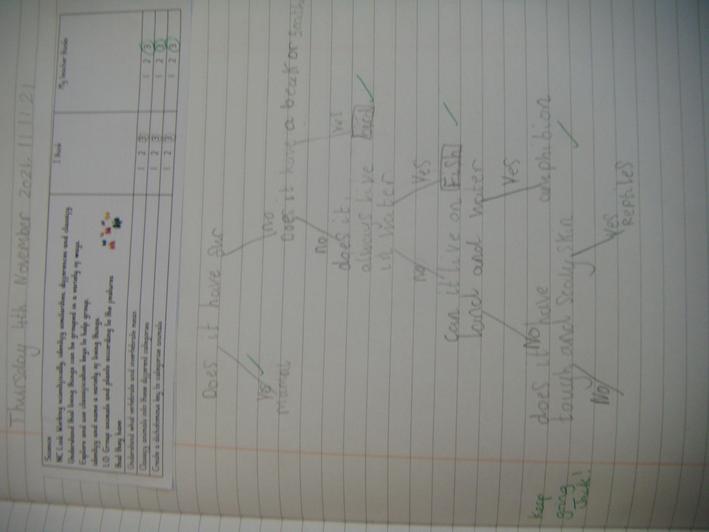 Thursday 4th November 2021 11.11.21
Science
I think
My teacher thinks
NC Link: Working scientifically, identify similarities, differences and classify
Understand that living things can be grouped in a variety of ways.
Explore and use classification keys to help group,
identify and name a variety of living things.
L.O. Group animals and plants according to the features
that they have
Understand what vertebrate and invertebrate mean 1 2 3 1 2 3
Classify animals into these different categories 1 2 3 1 2 3
Create a dichotomous key to categorise animals 1 2 3 1 2 3
Does it have fur
Yes
no
mamal
Does it have a beak or
no
does it
always live
in water
no
Yes
Fish
can it live on
land and water
No
Yes
amphibion
does it have
tough and scaly skin
No
Yes
Reptiles
keep
going
Jack!